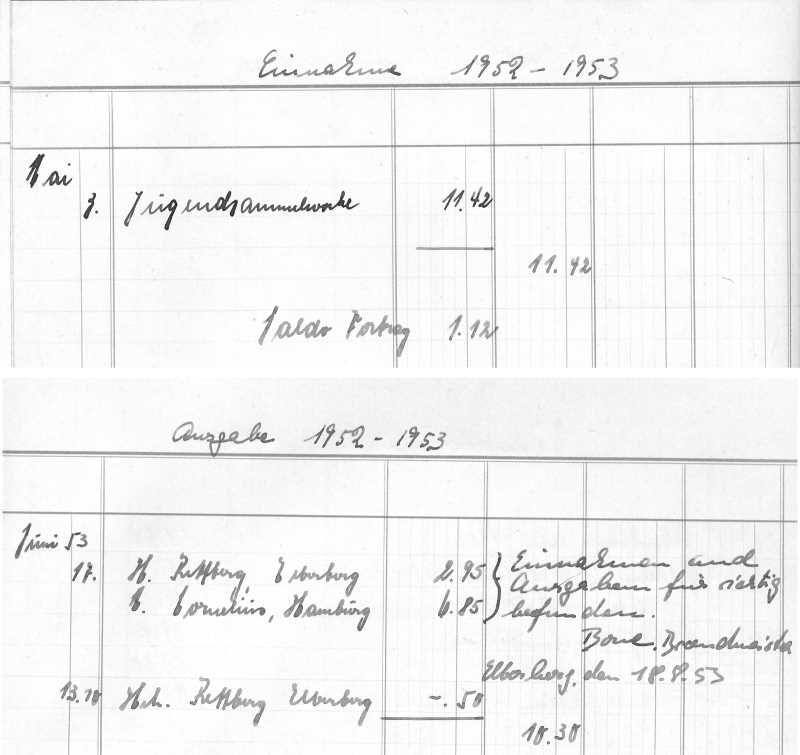 Einnahme 1952 - 1953
Mai
3. Jugendsammelwoche 11.42
11.42
Saldo Vortrag 1.12
Ausgabe 1952 - 1953
Juni 53
17. H. Rettberg, Elberberg 2.95 Einnahmen und
C. Cornelius, Hamburg 6.85 Ausgaben für richtig
befunden.
Bone. Brandmeister
Elberberg, den 18.8.53
13.10 Hch. Rettberg Elberberg -.50
10.30